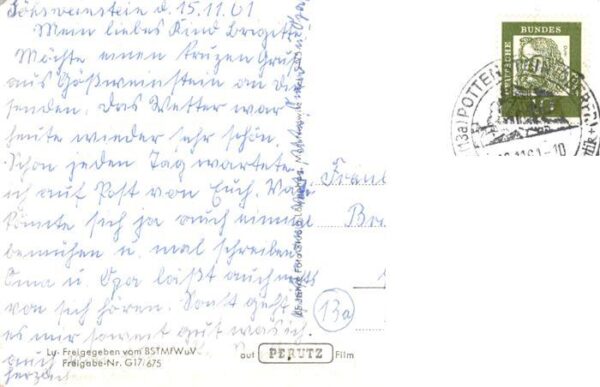 Gößweinstein d. 15.11.61
Mein liebes Kind Brigitt
Möchte einen kurzen Gruß
aus Gößweinstein an dich
senden. Das Wetter war
heute wieder sehr schön.
Schon jeden Tag wartete
ich auf Post von Euch. Vati
könnte sich ja auch einmal
bemühen u. mal schreiben.
Oma u. Opa laißt auch nichts
von sich hören. Sonst geht
es mir soweit gut was ich
auch
herzl
DEUTSCHE BUNDES
10
(13a) POTTEN
61-10
Frau
Br
13a
Lu- Freigegeben vom BSTMfWuV.
Freigabe-Nr. G17/675
auf PERUTZ Film